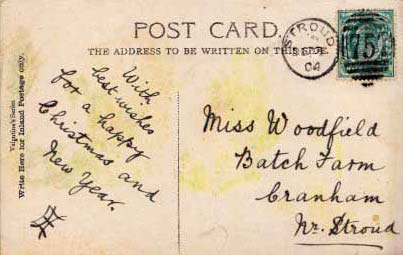 POST CARD.
THE ADDRESS TO BE WRITTEN ON THIS SIDE.
STROUD
04
75
Valentine's Series
Write Here for Inland Postage only.
With
best wishes
for a happy
Christmas and
New Year.
Miss Woodfield
Batch Farm
Cranham
Nr. Stroud